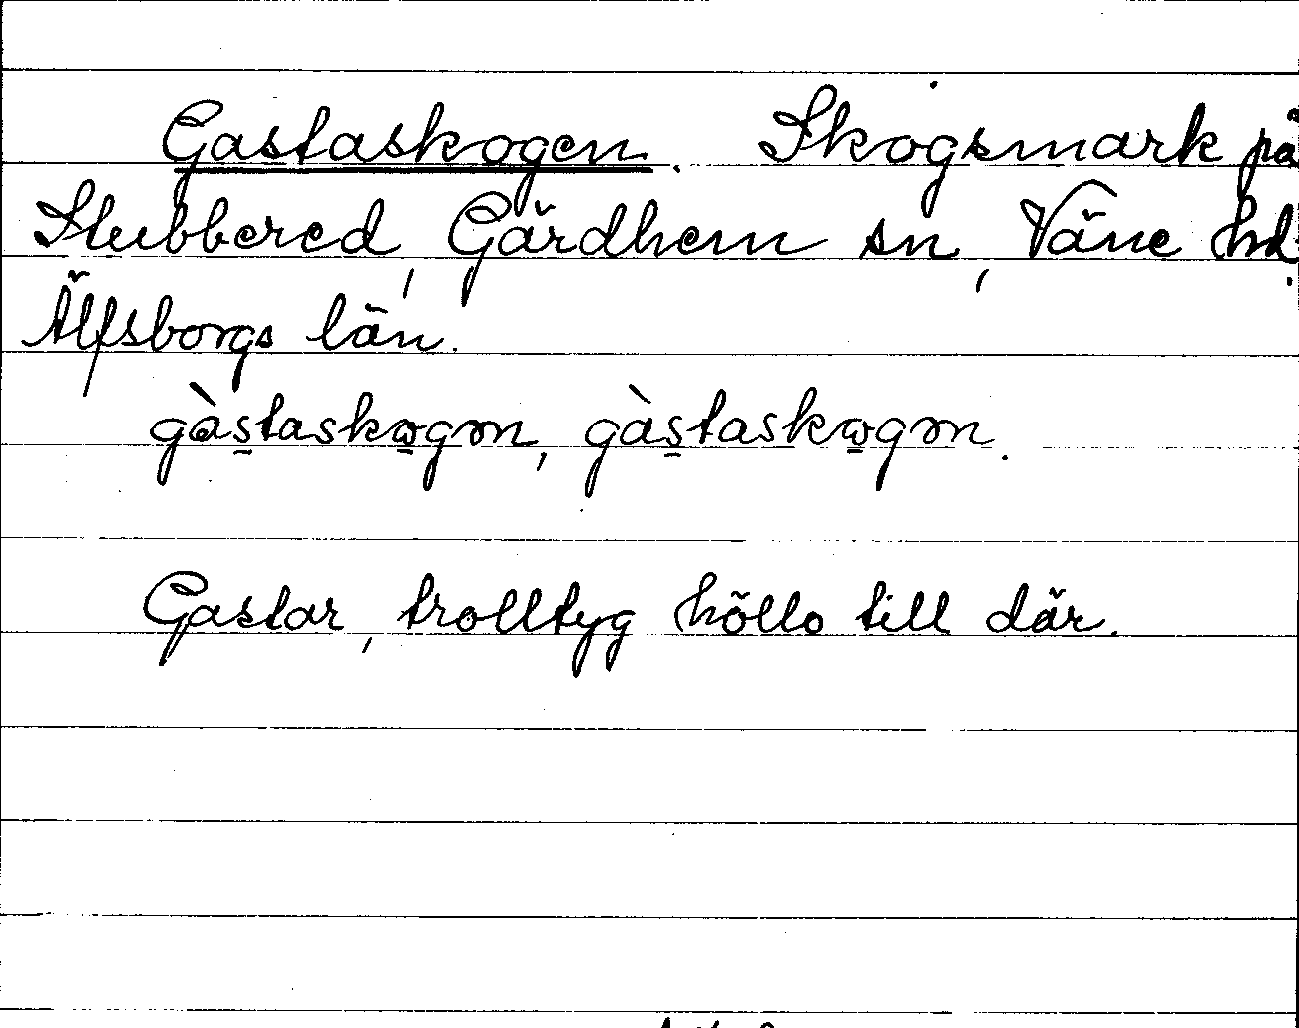 Gastaskogen. Skogsmark på
Stubbered, Gärdhem sn, Väne hd.
Älfsborgs län.
gàstaskogən, gàstaskogən.
Gastar, trolltyg höllo till där.